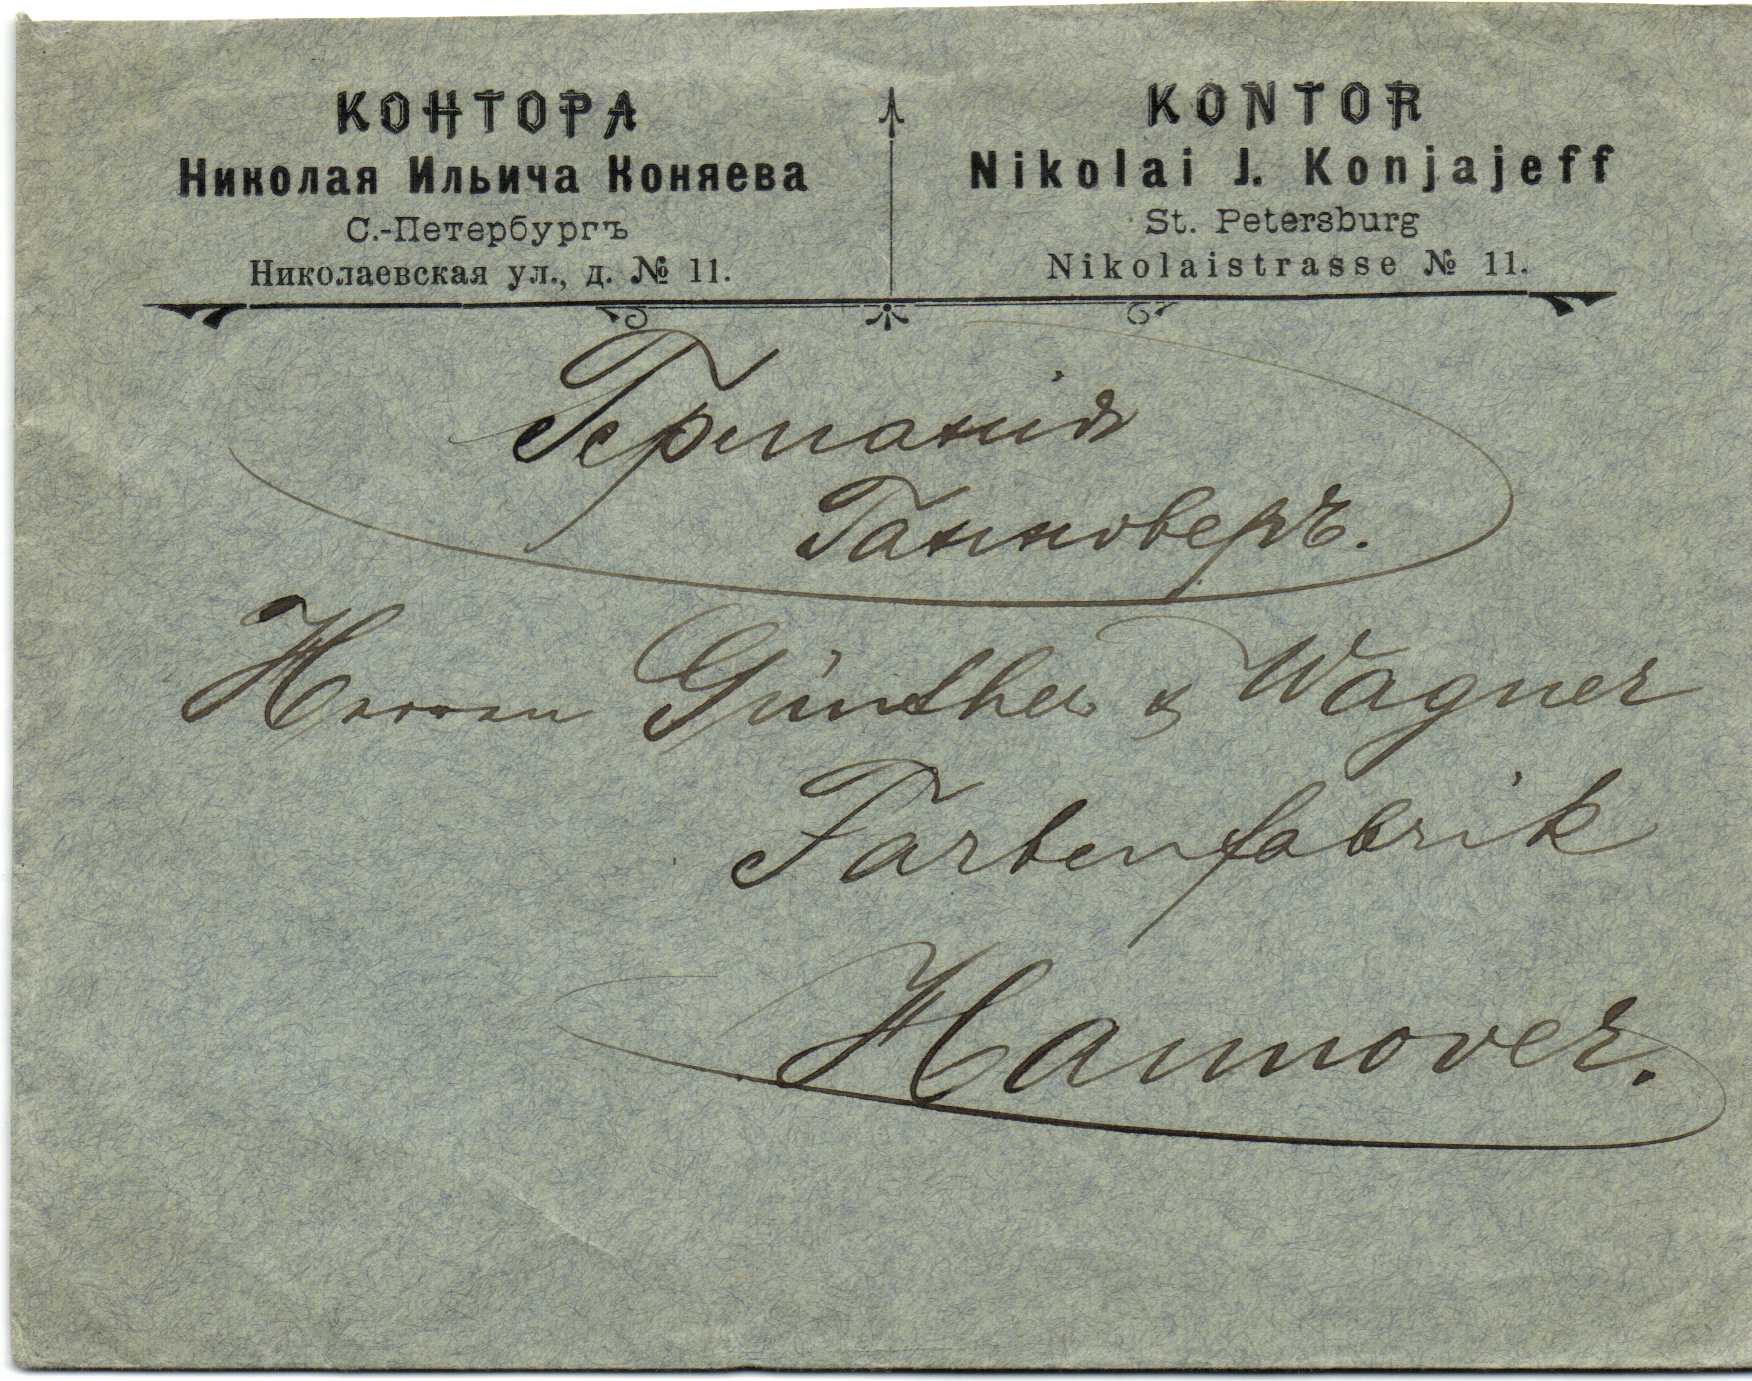 КОНТОРА
Николая Ильича Коняева
С.-Петербургъ
Николаевская ул., д. № 11.
KONTOR
Nikolai J. Konjajeff
St. Petersburg
Nikolaistrasse № 11.
Германія
Ганноверъ.
Herren Günther & Wagner
Farbenfabrik
Hannover.